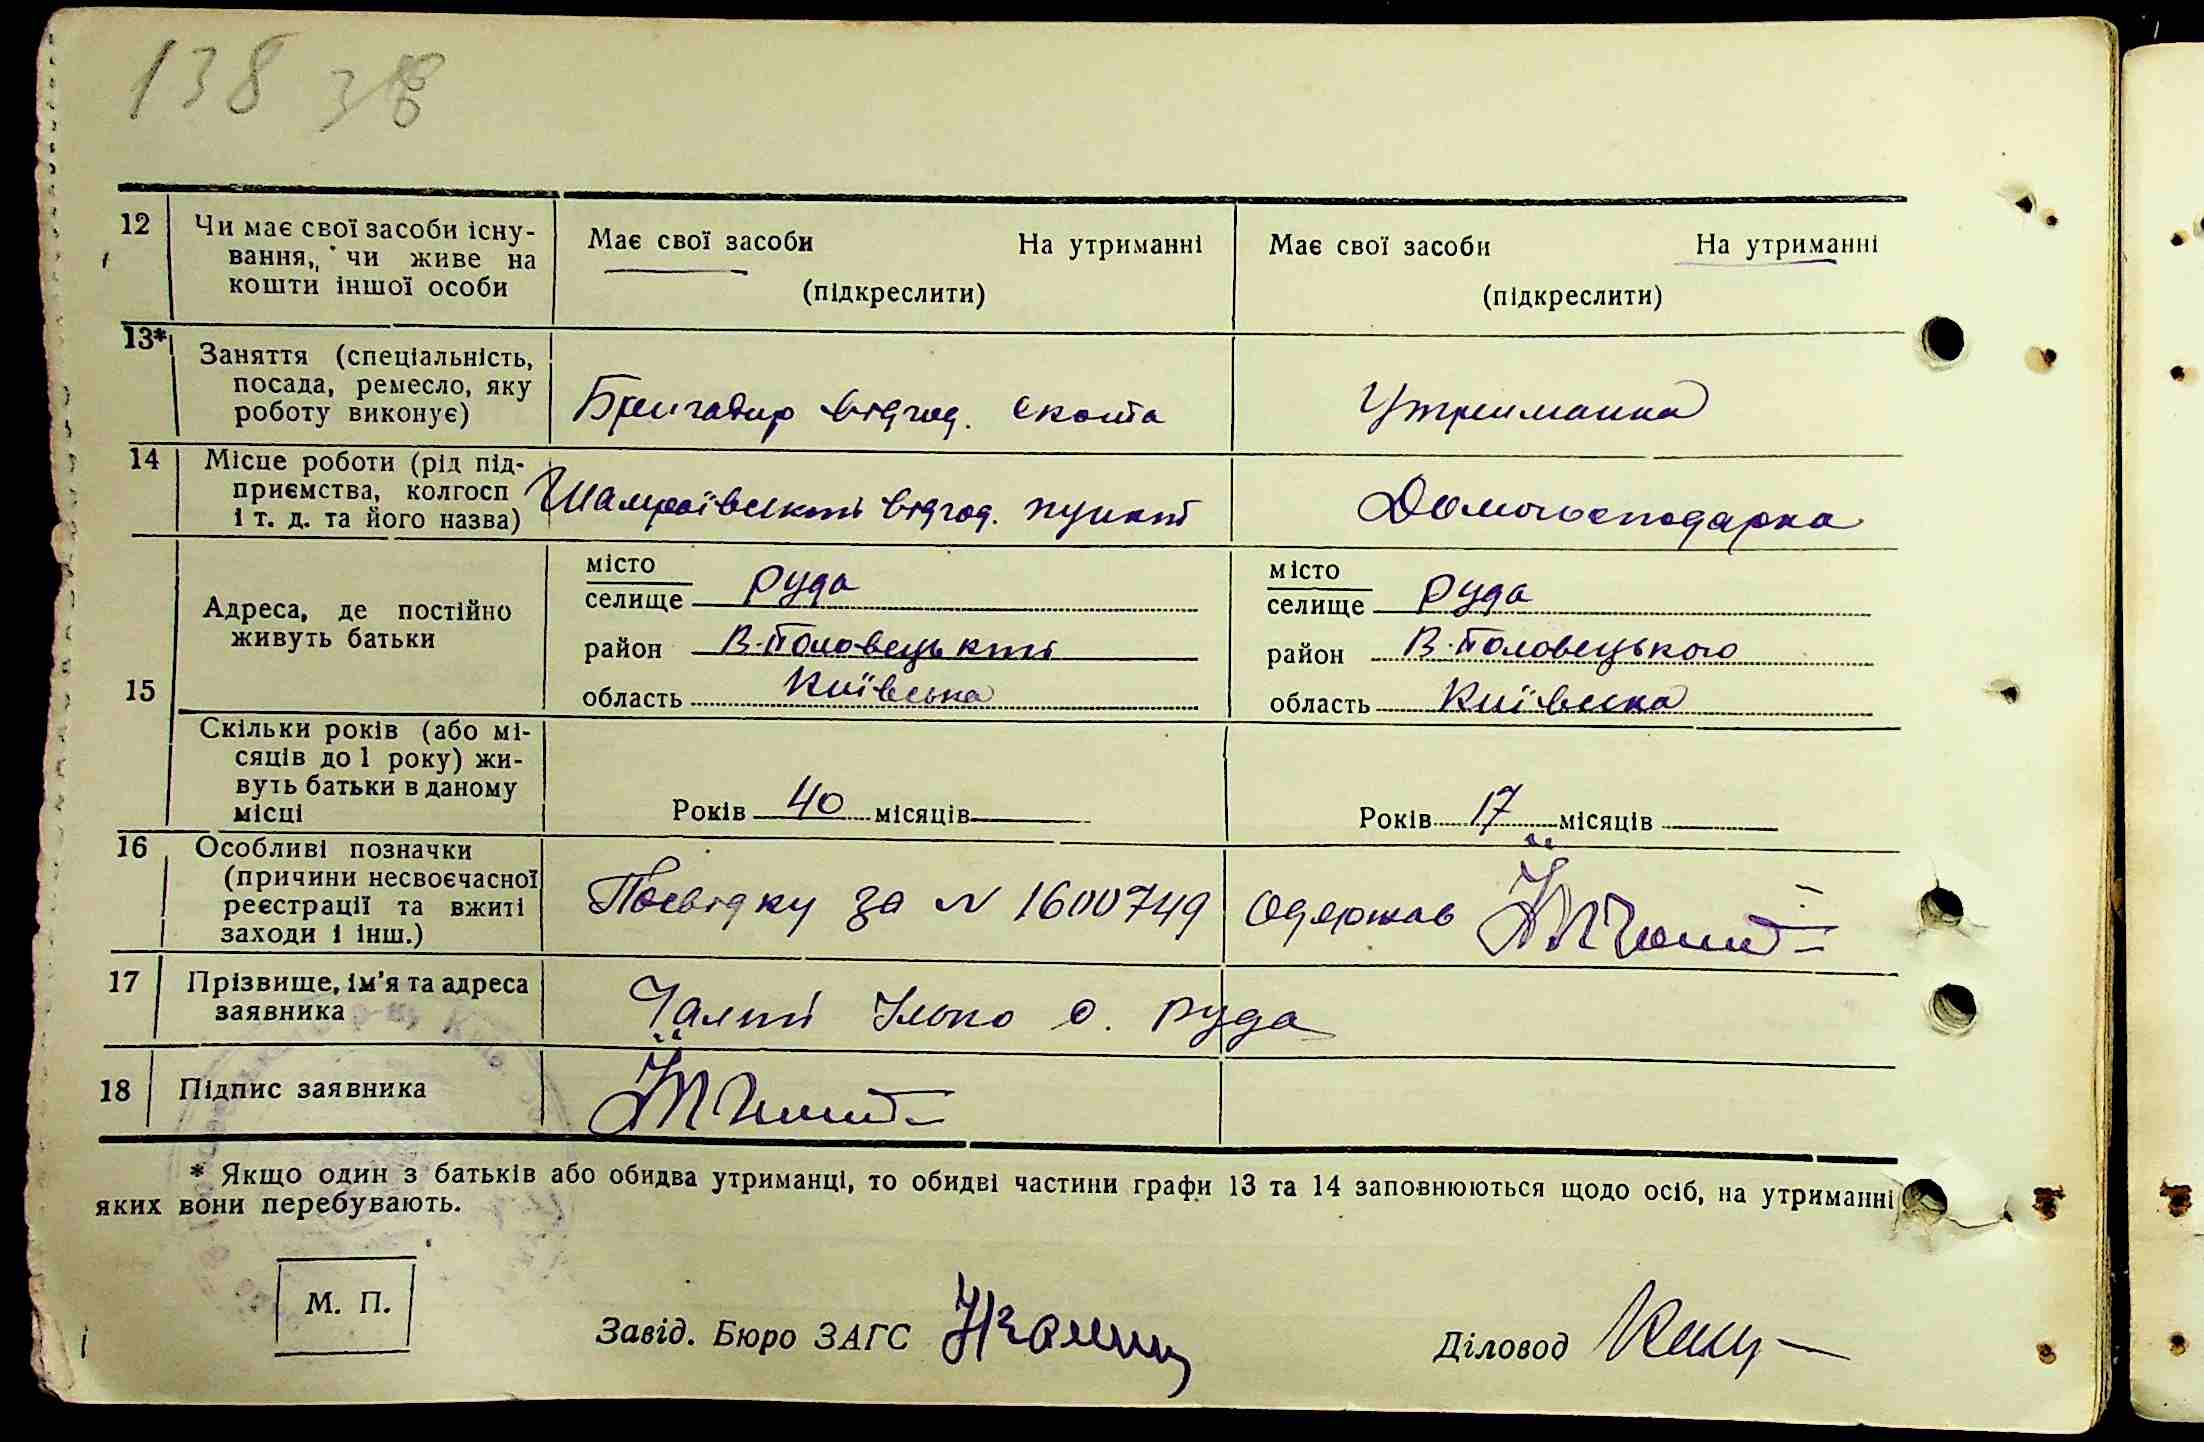 138 38
12 Чи має свої засоби існу-
вання, чи живе на
кошти іншої особи
Має свої засоби На утриманні
(підкреслити)
Має свої засоби На утриманні
(підкреслити)
13* Заняття (спеціальність,
посада, ремесло, яку
роботу виконує)
Бригадир відгод. скота
Утриманка
14 Місце роботи (рід під-
приємства, колгосп
і т. д. та його назва)
Шамраївський відгод. пункт
Домогосподарка
15
Адреса, де постійно
живуть батьки
місто
селище Руда
район В-Половецький
область Київська
місто
селище Руда
район В-Половецького
область Київська
Скільки років (або мі-
сяців до 1 року) жи-
вуть батьки в даному
місці
Років 40 місяців
Років 17 місяців
16 Особливі позначки
(причини несвоєчасної
реєстрації та вжиті
заходи і інш.)
Посвідку за N 1600749 одержав
17 Прізвище, ім'я та адреса
заявника
Ілько с. Руда
18 Підпис заявника
* Якщо один з батьків або обидва утриманці, то обидві частини графи 13 та 14 заповнюються щодо осіб, на утриманні
яких вони перебувають.
М. П.
Завід. Бюро ЗАГС
Діловод